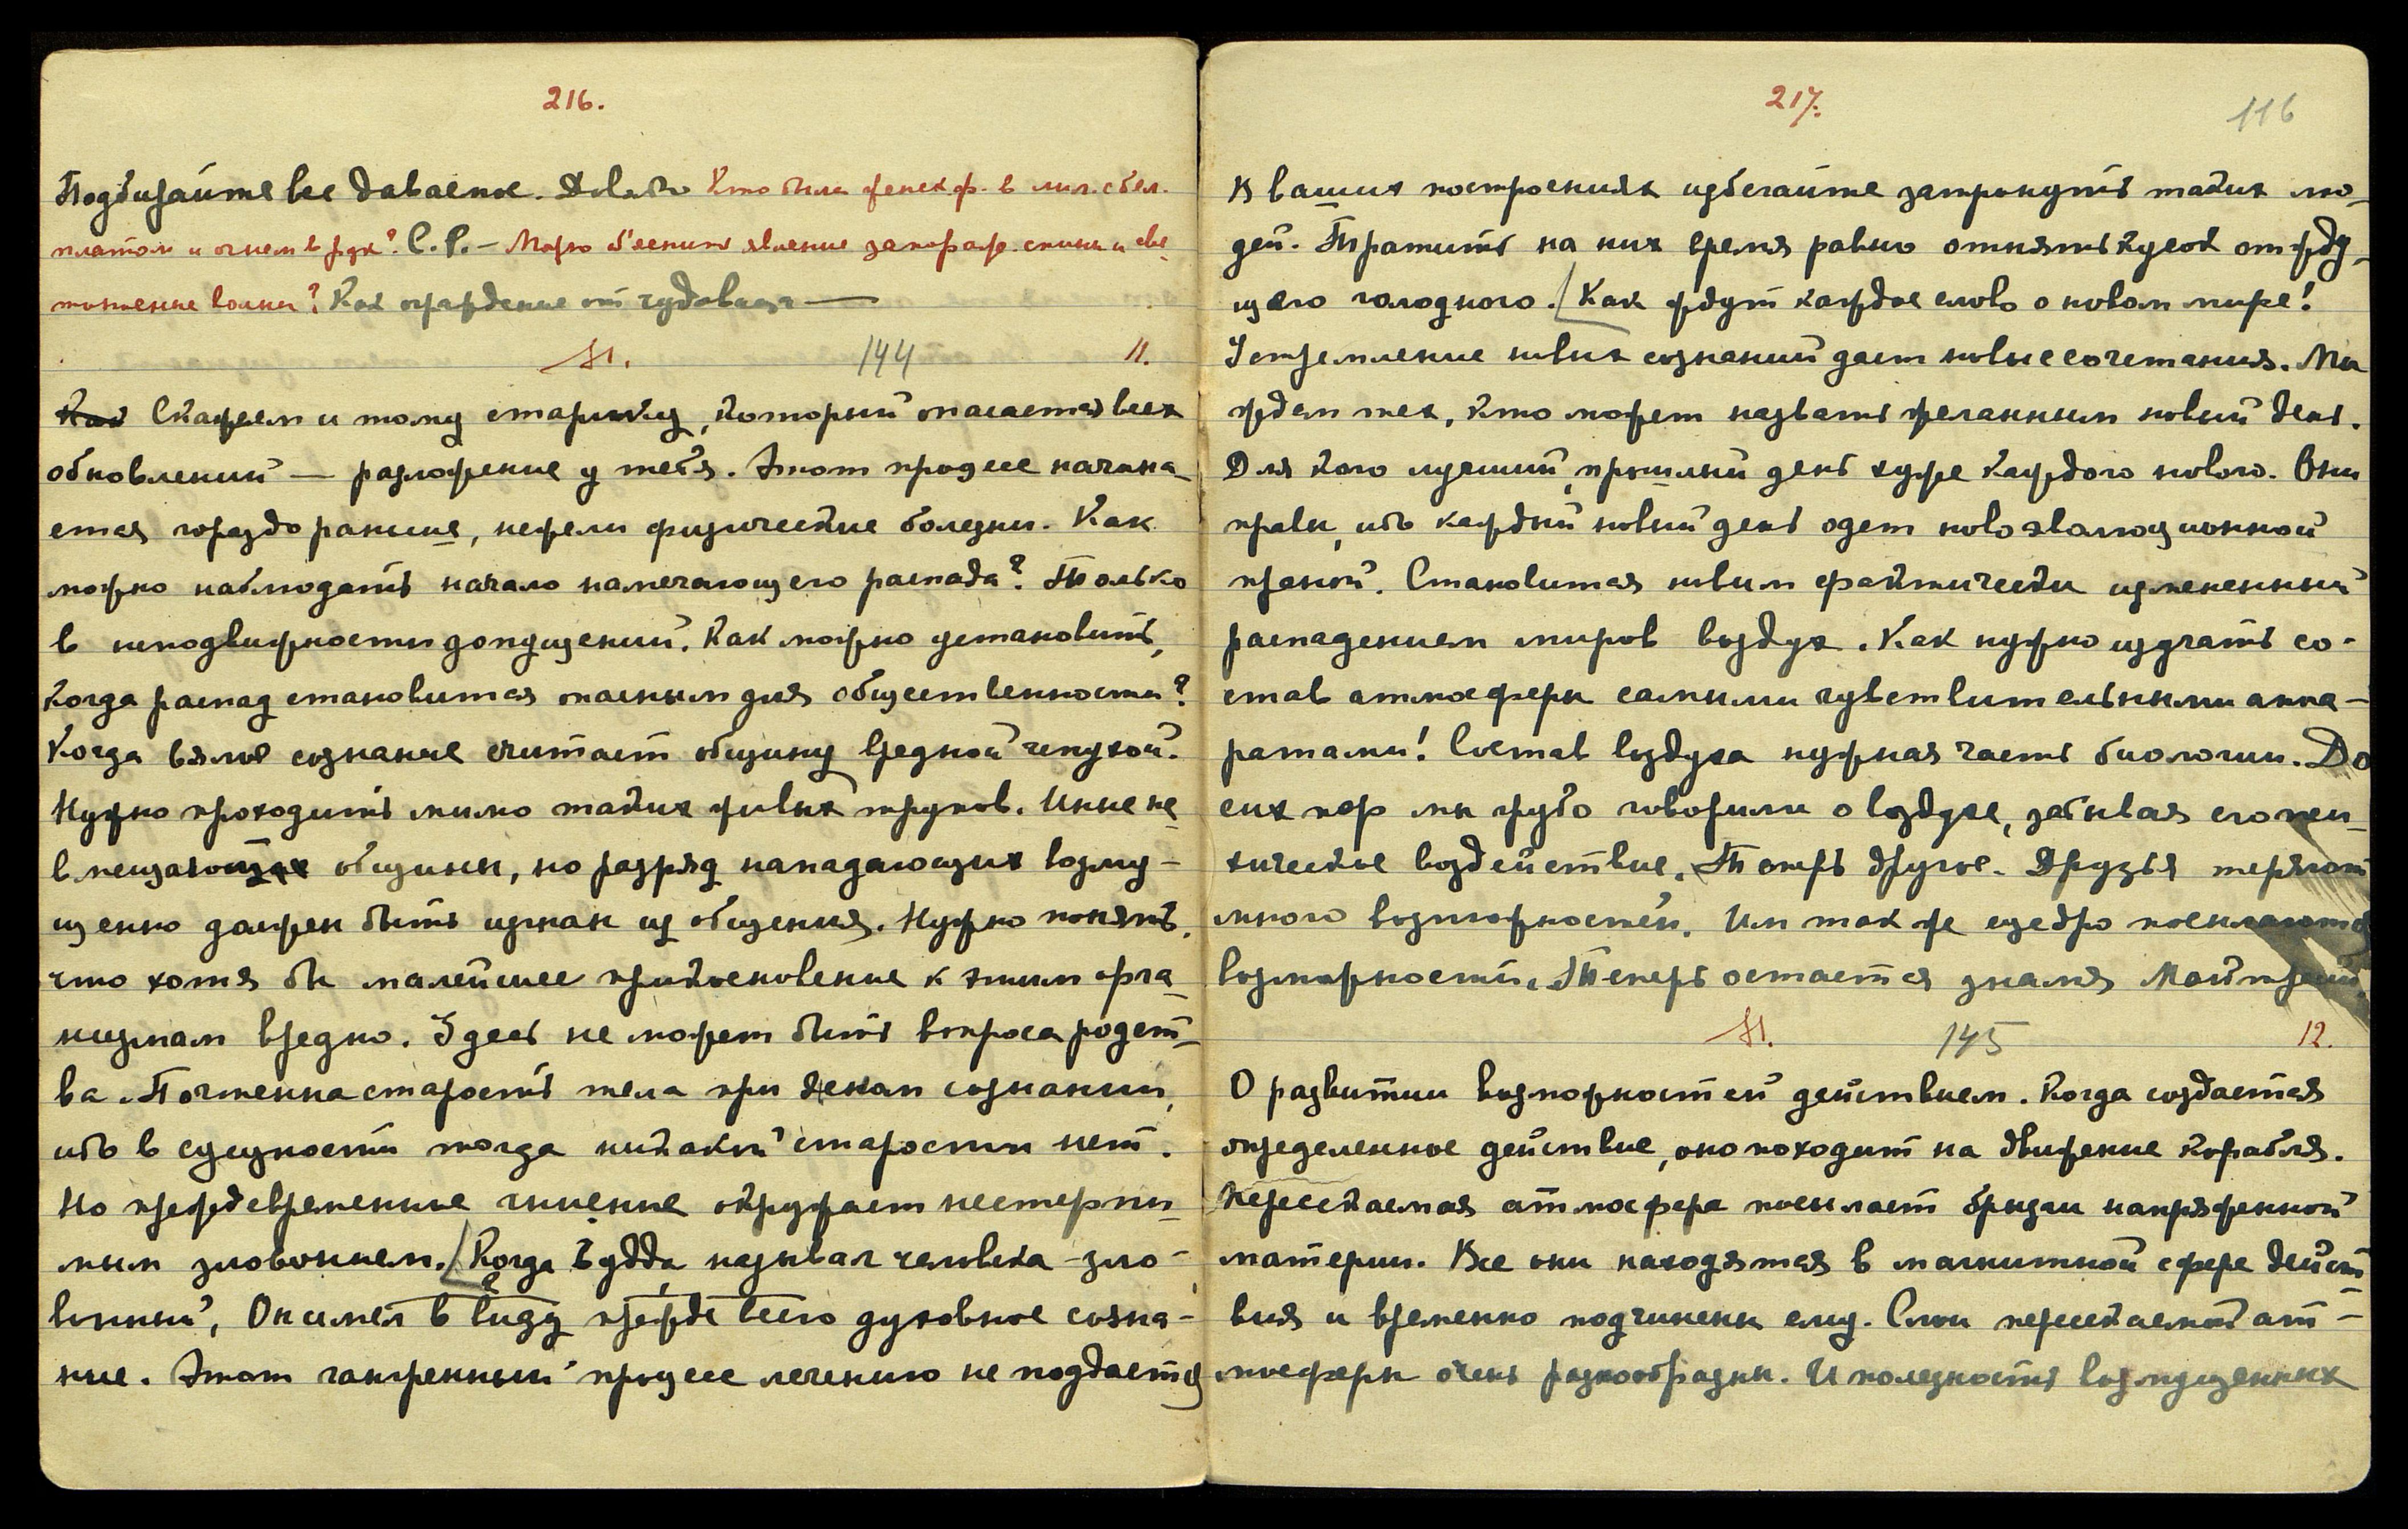 216.
Подвизайте все даваемое. Довольно Кто была женск. ф. в лил. с бел.
платом и огнем в рук? С. Р. – Можно об'яснить явление замораж. спины и све
волны? Как ограждение от чудовища —
М. 144 11.
Как Скажем и тому старичку, который опасается всех
обновлений — разложение у тебя. Этот процесс начина_
ется гораздо раньше, нежели физические болезни. Как
можно наблюдать начало намечающегося распада? Только
в неподвижности допущений. Как можно установить,
когда распад становится опасным для общественности?
Когда вялое сознание считает общину вредной чепухой.
Нужно проходить мимо таких живых трупов. Иные не_
вмещающие общины, но разряд нападающих возму–
щенно должен быть изгнан из общения. Нужно понять,
что хотя бы малейшее прикосновение к этим орга_
низмам вредно. Здесь не может быть вопроса родст_
ва. Почтенна старость тела при юном сознании,
ибо в сущности тогда никакой старости нет.
Но преждевременное гниение окружает нестерпи_
мым зловонием. Когда Будда называл человека –зло–
вонный, Он имел в виду прежде всего духовное созна–
ние. Этот гангренный процесс лечению не поддается
217.
116
В ваших построениях избегайте затронуть таких лю_
дей. Тратить на них время равно отнять кусок от жду_
щего голодного. Как ждут каждое слово о новом мире!
Устремление новых сознаний дает новые сочетания. Мы
ждем тех, кто может назвать желанным новый день.
Для кого лучший прошлый день хуже каждого нового. Они
правы, ибо каждый новый день одет новоэволюционной
праной. Становится новым фактически измененный
распадением миров воздух. Как нужно изучать со–
став атмосферы самыми чувствительными аппа–
ратами! Состав воздуха нужная часть биологии. До
сих пор мы грубо говорили о воздухе, забывая его пси_
хическое воздействие. Теперь другое. Друзья теряют
много возможностей. Им так же щедро посылаются
возможности. Теперь остается знамя Майтрейи.
М. 145 12.
О развитии возможностей действием. Когда создается
определенное действие, оно походит на движение корабля.
Пересекаемая атмосфера посылает брызги напряженной
материи. Все они находятся в магнитной сфере дейст
вия и временно подчинены ему. Слои пересекаемой ат–
мосферы очень разнообразны. И полезность возмущенных